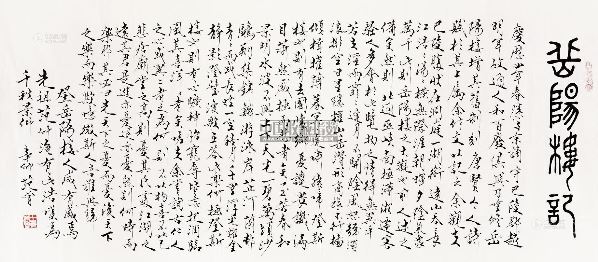 岳陽樓記
慶曆四年春滕子京謫守巴陵郡越
明年政通人和百廢具興乃重修岳
陽樓增其舊制刻唐賢今人詩
賦於其上屬余作文以記之余觀夫
巴陵勝狀在洞庭一湖銜遠山吞長
江浩浩湯湯橫無際涯朝暉夕陰氣象
萬千此則岳陽樓之大觀也前人之述
備矣然則北通巫峽南極瀟湘遷客
騷人多會於此覽物之情得無異乎
若夫淫雨霏霏連月不開陰風怒號濁
浪排空日星隱耀山岳潛形商旅不行檣
傾楫摧薄暮冥冥虎嘯猿啼登斯
樓也則有去國懷鄉憂讒畏譏滿
目蕭然感極而悲者矣至若春和
景明波瀾不驚上下天光一碧萬頃沙
鷗翔集錦鱗游泳岸芷汀蘭郁郁
青青而或長煙一空皓月千里浮光躍金
靜影沉璧漁歌互答此樂何極登斯
樓也則有心曠神怡寵辱偕忘把酒臨
風其喜洋洋者矣嗟夫予嘗求古仁人
之心或異二者之為何哉不以物喜不以己
悲居廟堂之高則憂其民處江湖之
遠則憂其君是進亦憂退亦憂然則何時而
樂耶其必曰先天下之憂而憂後天下
之樂而樂歟噫微斯人吾誰與歸
登岳陽樓人咸有感焉
千秋景仰